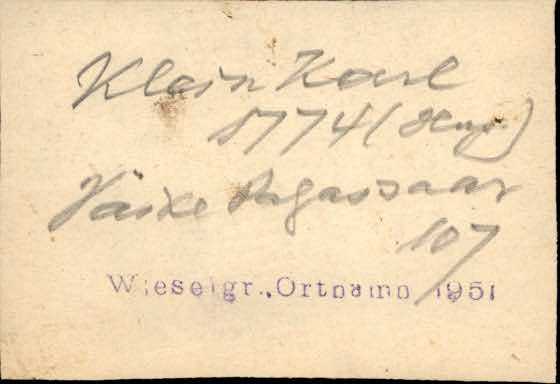 Klein Karl
1774 (Hup.)
Väike Argassaar
107
Wieselgr., Ortnamn 1951